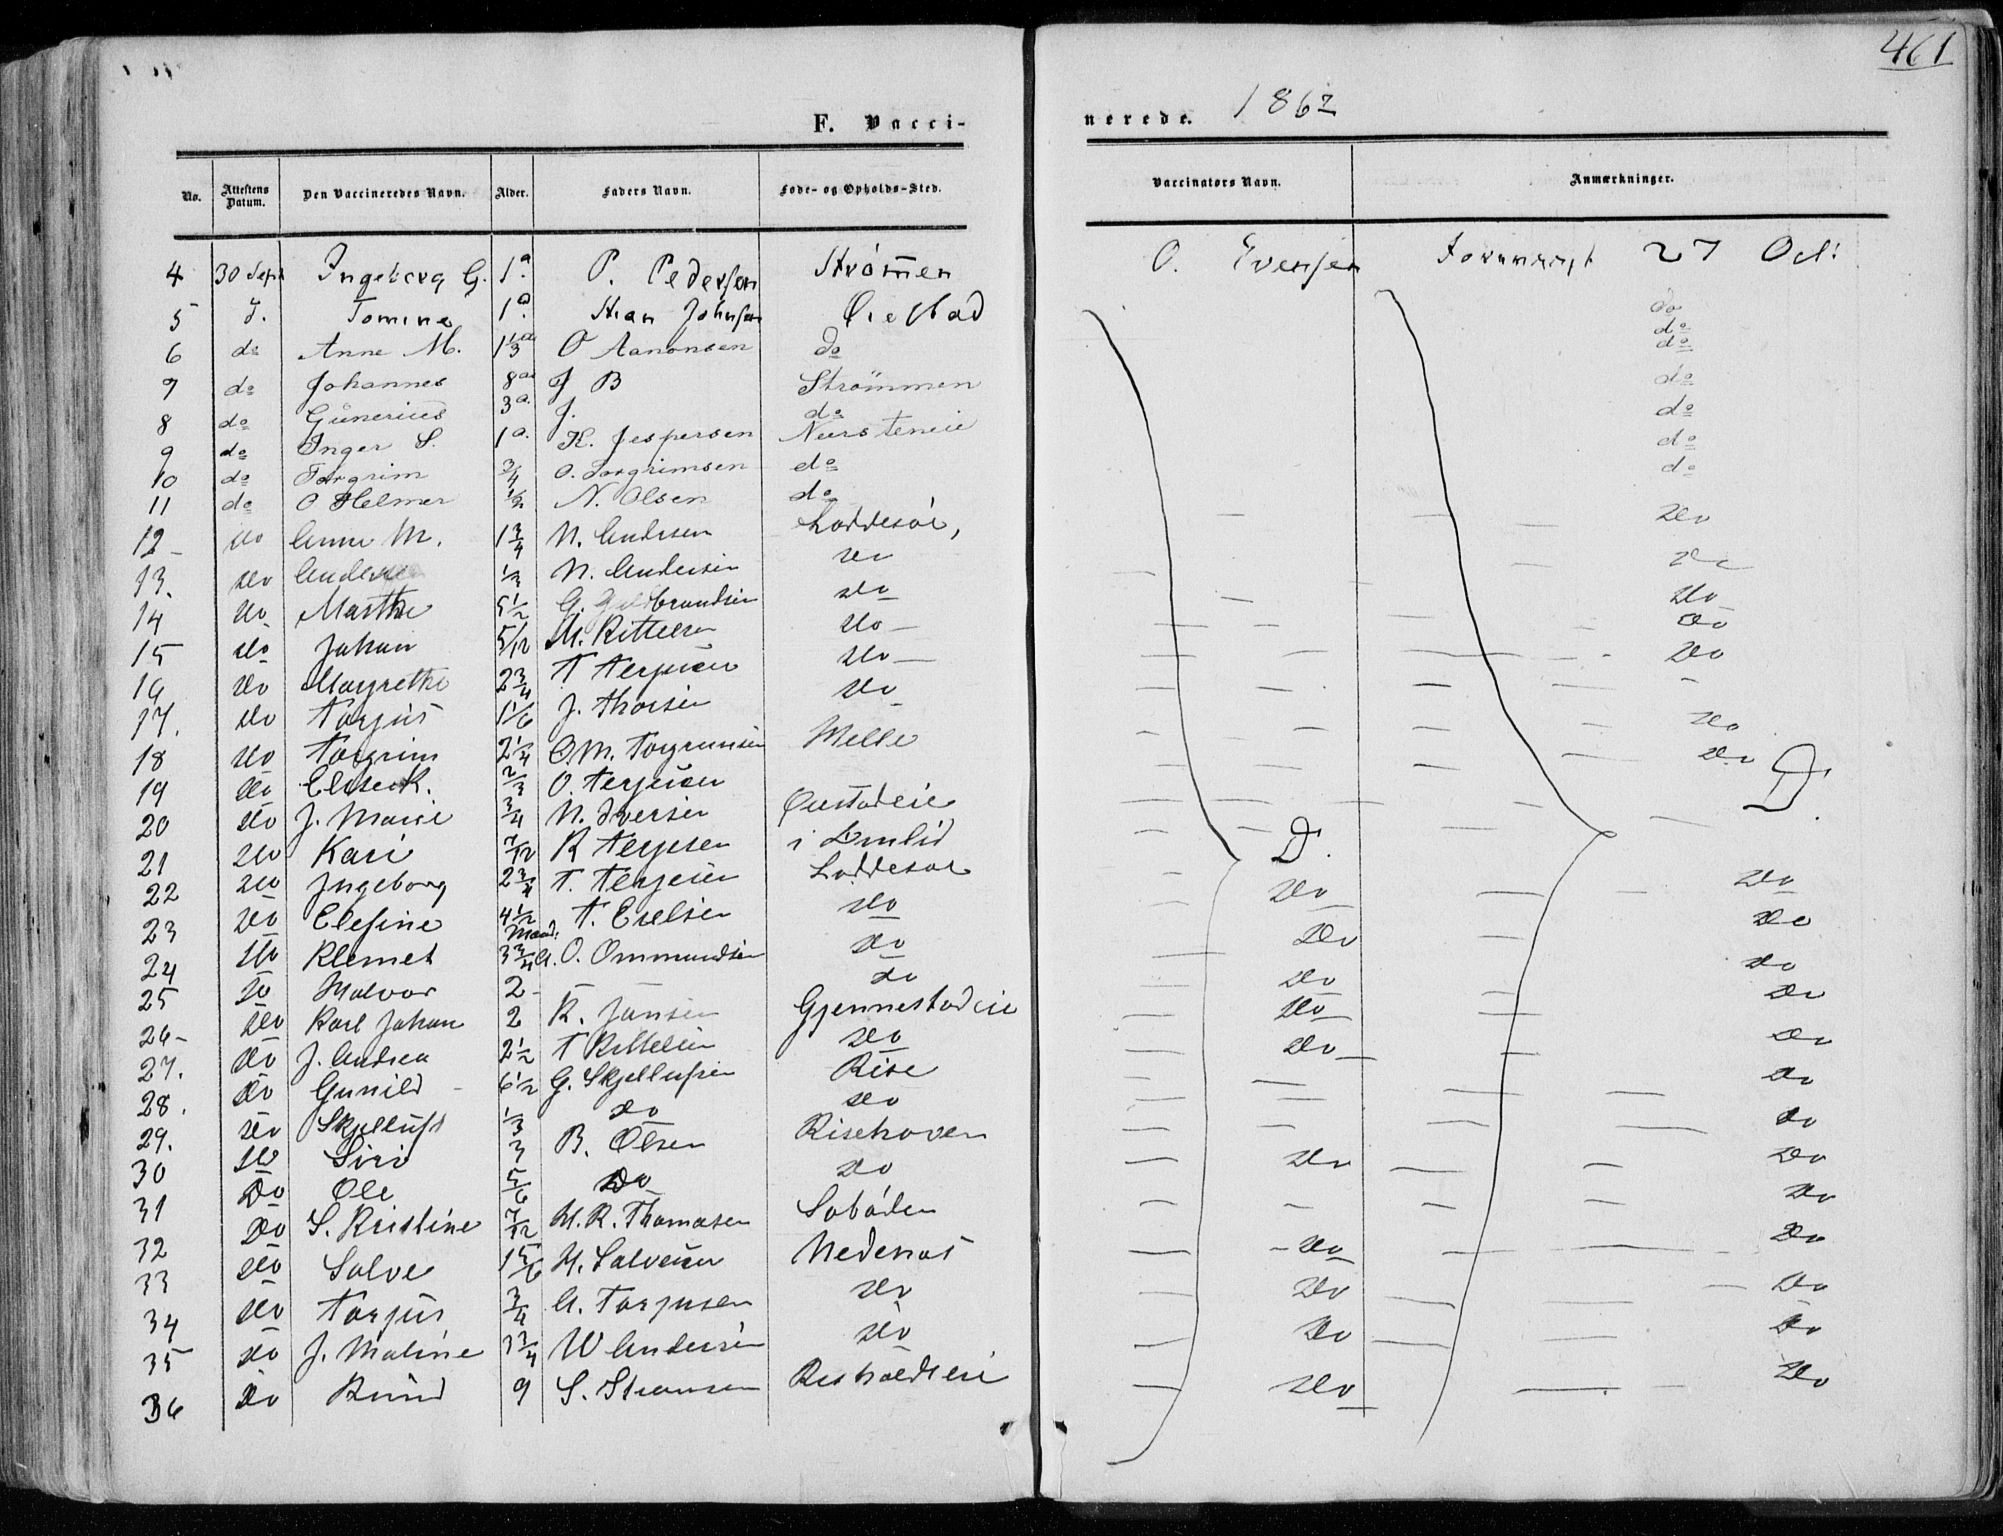 461
F. Vacci-nerede. 1862
No. Attestens Datum. Den Vaccineredes Navn. Alder. Faders Navn. Føde- og Opholds-Sted. Vaccinators Navn. Anmærkninger.
4 30 Sept Ingeborg G. 1 a P. Pedersen Strømen O. Evensen 27 Oct:
5 d. Tomine 1 a Johnsen Øiestad do
6 do Anne M. 1 1/3 a O Aanonsen do do do
7 do Johannes 8 a J B Strömmen do
8 do Gunerius 3 a. J. do do
9 do Inger S. 1 a. K. Jespersen do
10 do Torgrim 3/4 O. Torgrimsen do do
11 do O Helmer 1/2 N. Olsen do
12 do Anne M. 1 3/4 N. Andersen Loddesøl, do
13. do 1/3 N. Andersen do do
14 do Marthe 5 1/2 G. do do
15 do Johan 5/12 M. Kittelsen do do
16 do Margrethe 2 3/4 T Terjesen do do
17. do Torjus 1 1/6 J. Thorsen do
18 do Torgrim 2 1/4 O.M. Torgrimsen Melle do
19 do Elise K. 2/3 O. Terjesen do D.
20 do J. Marie 3/4 N. Iversen
21 do Kari 7/12 K Terjesen i D.
22 do Ingeborg 2 3/4 T. Terjesen Loddesøl do do
23 do Elefine 4 1/2 Maad: T. do do do
24 do Klemet 3 3/4 A. O. Ommundsen do do do
25 do Halvor 2 - do do do
26 do Karl Johan 2 K. Jansen Gjennestadeie do do
27. do J. Andrea 2 1/2 T Kittelsen do do
28. do Gunild 6 1/2 G. Skjellufsen Rise do
29. do Skjelluf 1/3 do do do
30 do Siri 3 B. Olsen Risehaven do do
31 Do Ole 5/6 Do do do
32 do S. Kristine 7/12 H. R. Thomasen do do
33 do Salve 1 5/6 H. Salvesen Nedenæs do do
34 do Torjus 3/4 A. Torjusen do do do
35 do J. Maline 3 3/4 W Andersen do do do
36 do Knud 9 S. do